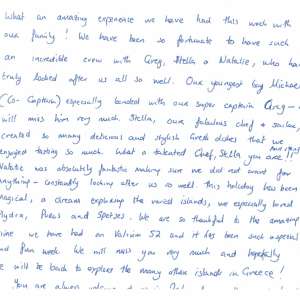 What an amazing experience we have had this week with
our family! We have been so fortunate to have such
an incredible crew with Greg, Stella & Natalie, who have
truly looked after us all so well. Our youngest boy Michael
(Co-Captain) especially bonded with our super captain Greg -
will miss him very much. Stella, our fabulous chef &
created so many delicious and stylish Greek dishes that we
enjoyed tasting so much. What a talented Chef, Stella you are!!
Natalie was absolutely fantastic making sure we did not want for
anything - constantly looking after us so well. This holiday has been
magical, a dream exploring the varied islands, we especially loved
Hydra, Poros and Spetses. We are so thankful to the amazing
time we have had on Valium 52 and it has been such a special
and fun week. We will miss you very much and hopefully
we will be back to explore the many other islands in Greece!
You are always welcome